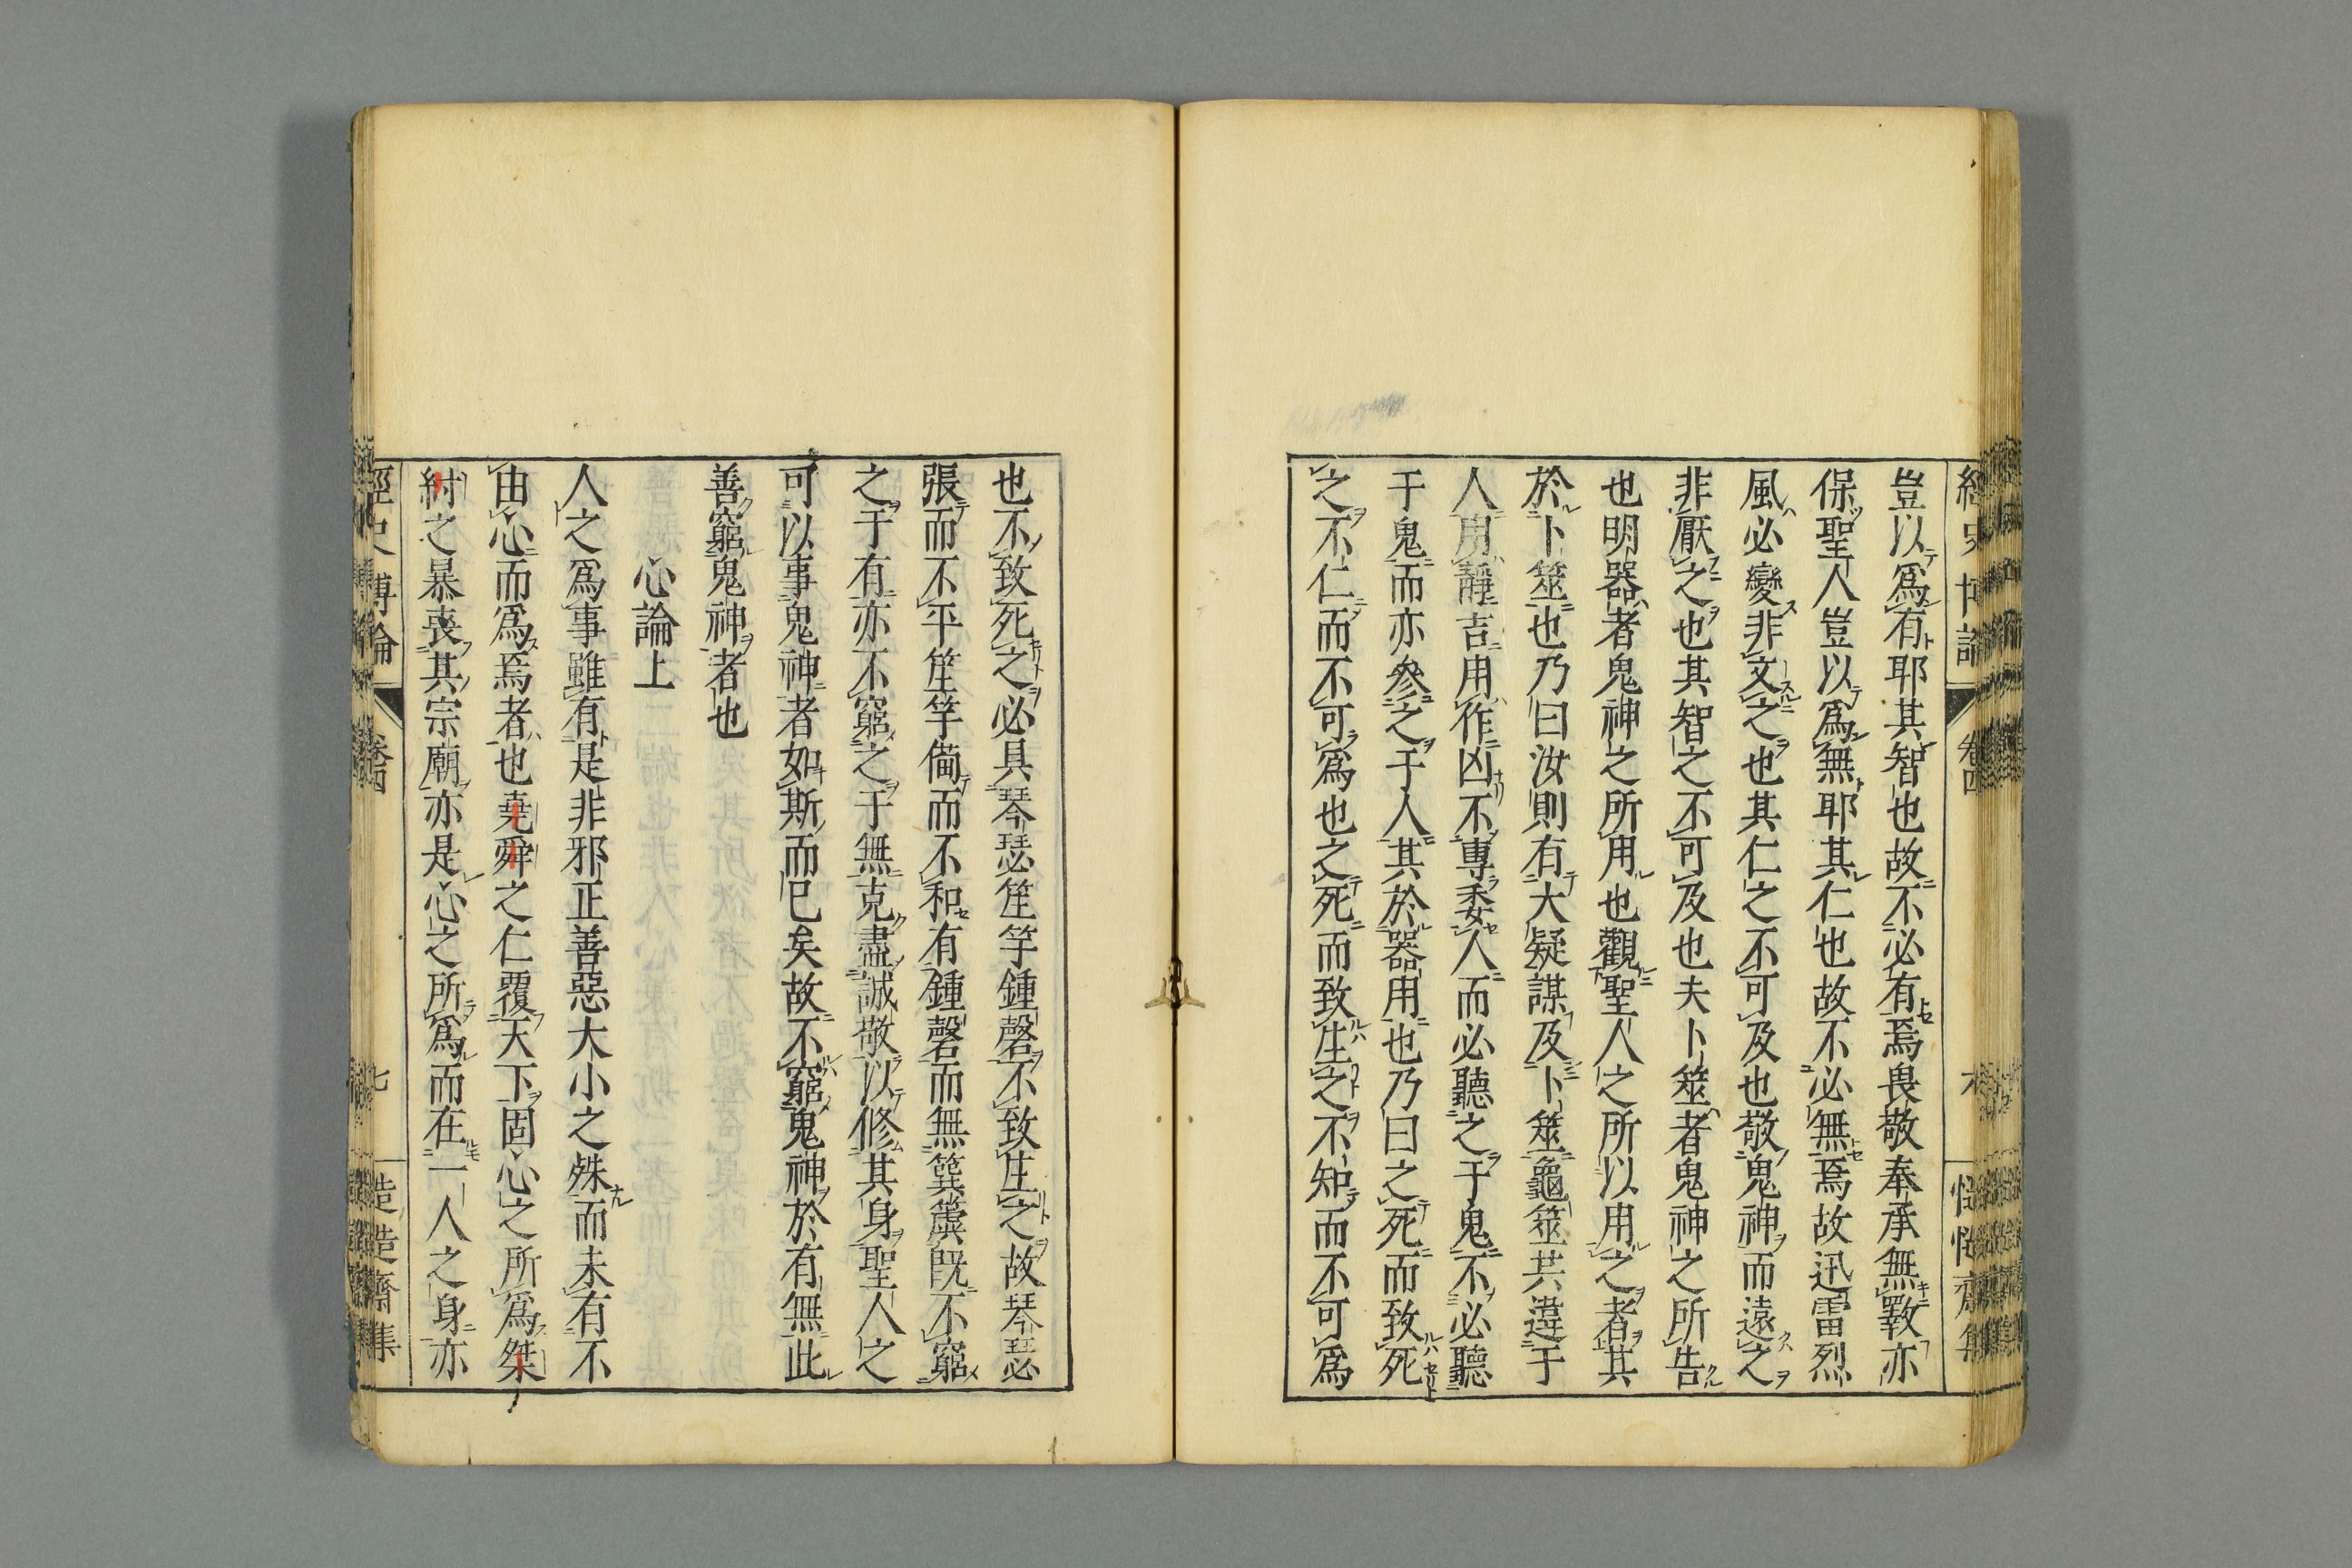 豈以爲有耶其智也故不必有焉畏敬奉承無斁亦
保聖人豈以爲無耶其仁也故不必無焉故迅雷烈
風必變非文之也其仁之不可及也敬鬼神而遠之
非厭之也其智之不可及也夫卜筮者鬼神之所告
也明器者鬼神之所用也觀聖人之所以用之者其
於卜筮也乃曰汝則有大疑謀及卜筮龜筮共違于
人用靜吉用作凶不專委人而必聽之于鬼不必聽
于鬼而亦參之于人其於器用也乃曰之死而致死
之不仁而不可爲也之死而致生之不知而不可爲
經史博論 卷四 六
也不致死之必具琴瑟笙竽鍾磬不致生之故琴瑟
張而不平笙竽備而不和有鍾磬而無簨簴既不窮
之于有亦不窮之于無克盡誠敬以修其身聖人之
可以事鬼神者如斯而已矣故不窮鬼神於有無此
善窮鬼神者也
心論上
人之爲事雖有是非邪正善惡大小之殊而未有不
由心而爲焉者也堯舜之仁覆天下固心之所爲桀
紂之暴喪其宗廟亦是心之所爲而在一人之身亦
經史博論 卷四 七